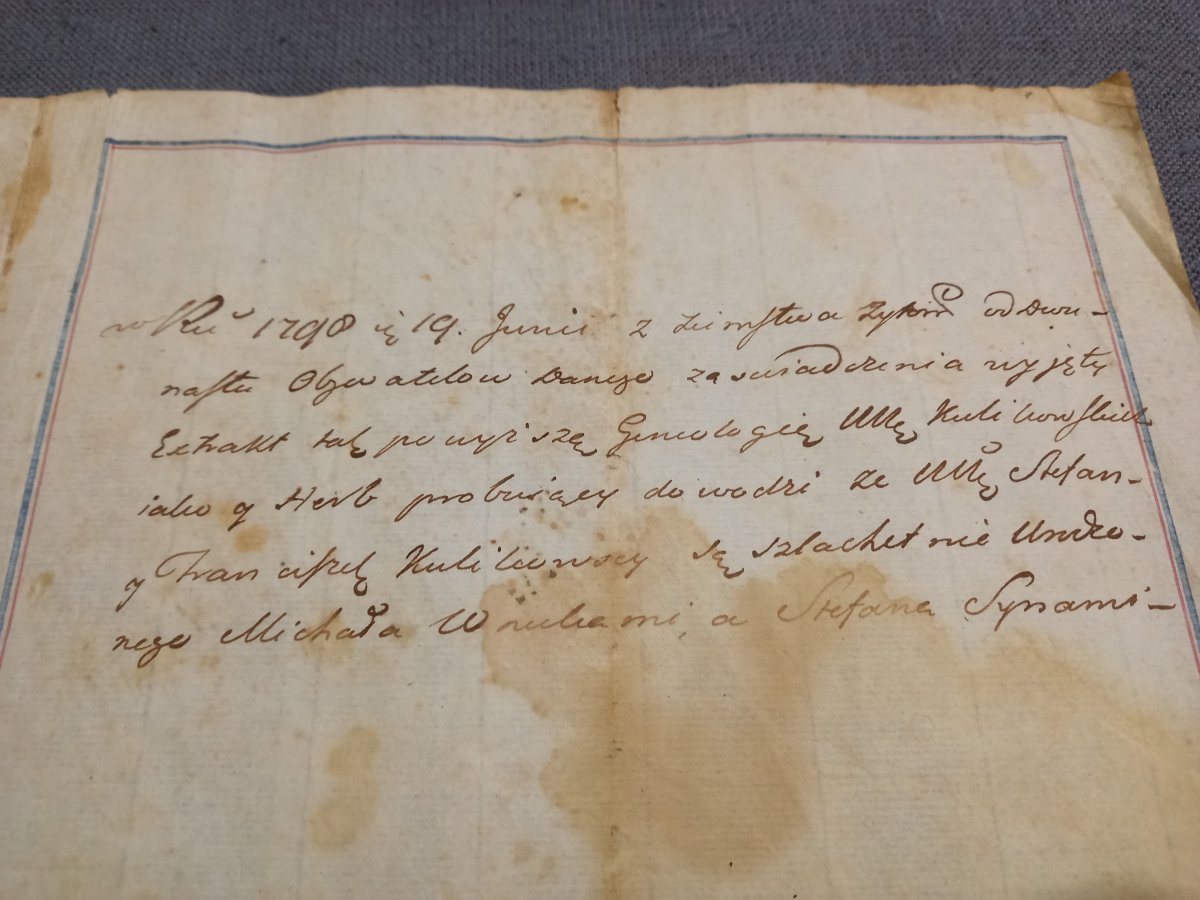 w Roku 1798 ię 19. Junii z Ziemstwa Żytom od Dwu-
nastu Obywatelow Danego zaswiadczenia wyjęty
Extrakt tak powyiszą Geneologię UUę Kulikowskich
iako y Herb probuiący dowodzi że UUę Stefan-
y Franciszek Kulikowscy są szlachetnie Urodzo-
nego Michała Wnukami, a Stefana Synami-